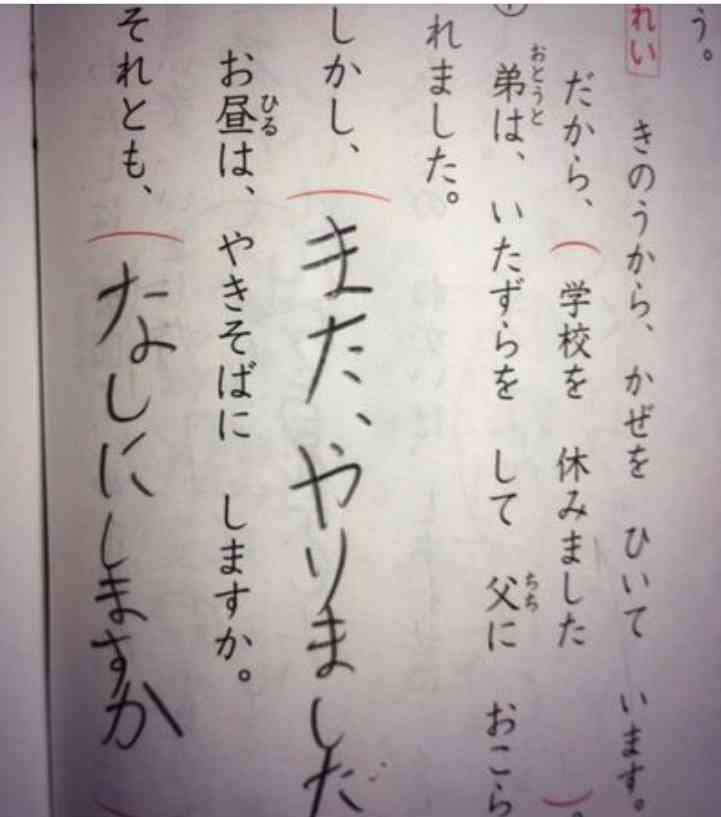 う。
れい きのうから、かぜを ひいて います。
だから、(学校を 休みました)。
① 弟は、いたずらを して 父に おこら
おとうと
ちち
れました。
しかし、(また、やりました
お昼は、やきそばに しますか。
ひる
それとも、(なしにしますか)